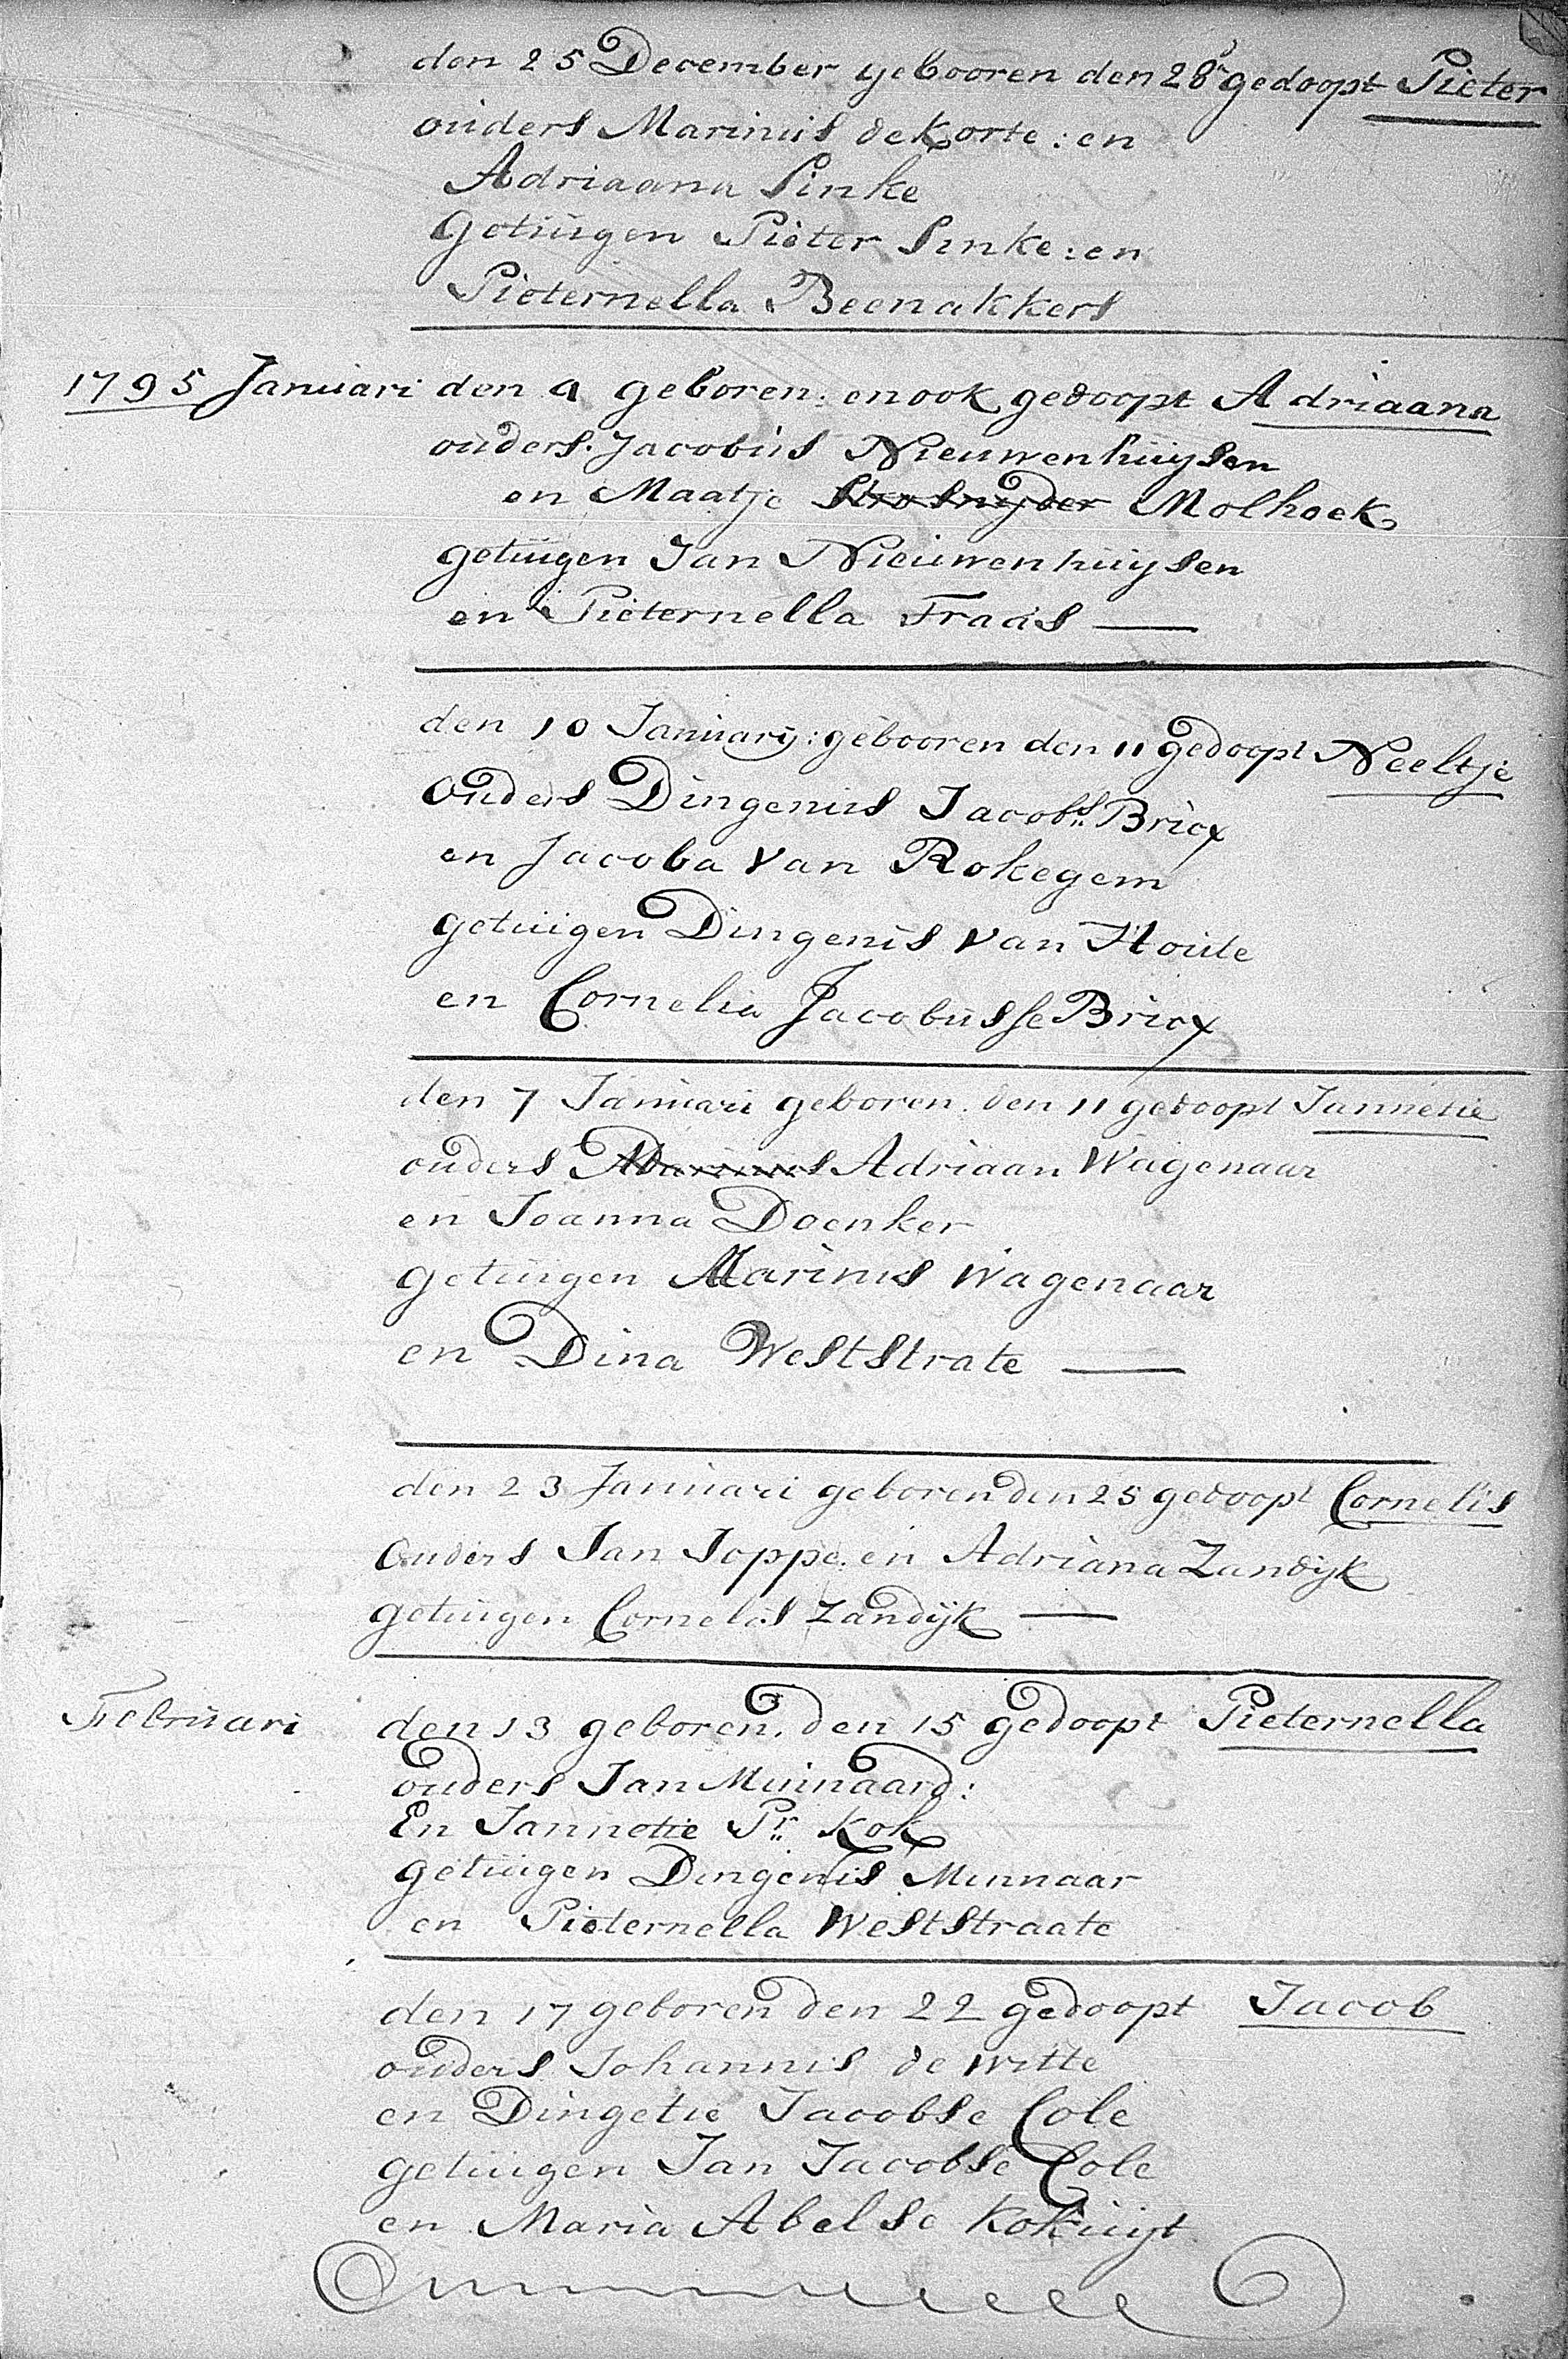 den 25 December gebooren den 28 gedoopt Pieter
ouders Marinus de Korte : en
Adriaana Sinke
Getuigen Pieter Sinke : en
Pieternella Beenakkers
1795 Januari den 4 geboren: en ook gedoopt Adriaana
ouders. Jacobus Nieuwenhuijsen
en Maatje Stroosnyder Molhoek
getuigen Jan Nieuwenhuijsen
en Pieternella Fraas
den 10 Januarij: gebooren den 11 gedoopt Neeltje
Ouders Dingenus Jacobs Bricx
en Jacoba van Rokegem
getuigen Dingenis van Houte
en Cornelia Jacobusse Bricx
den 7 Januari geboren. den 11 gedoopt Jannetie
ouders Marinus Adriaan Wagenaar
en Joanna Doenker
getuigen Marinus Wagenaar
en Dina Weststrate
den 23 Januari geboren den 25 gedoopt Cornelis
Ouders Jan Joppe. en Adriana Zandijk
getuigen Cornelis Zandijk
Februari den 13 geboren. den 15 gedoopt Pieternella
ouders Jan Minnaard :
En Jannetie Pr. Kok
getuigen Dingenis Minnaar
en Pieternella Weststraate
den 17 geboren den 22 gedoopt Jacob
ouders Johannis de Witte
en Dingetie Jacobse Cole
getuigen Jan Jacobse Cole
en Maria Abelse Kokuijt